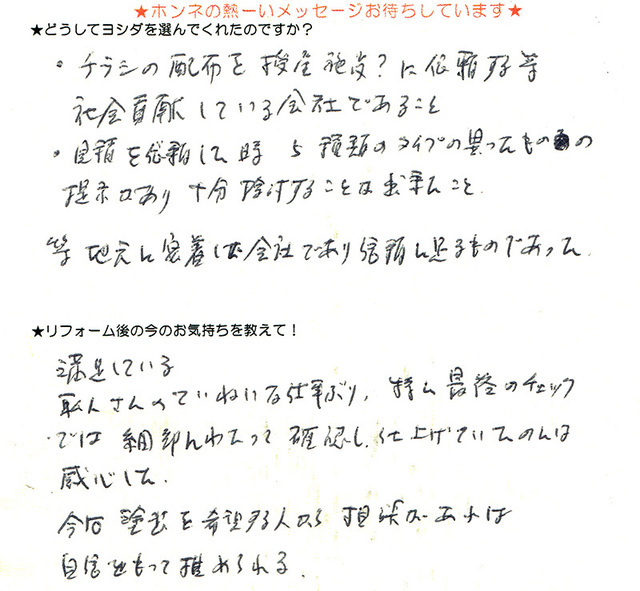 ★ホンネの熱ーいメッセージお待ちしています★
★どうしてヨシダを選んでくれたのですか？
・チラシの配布を授産施設？に依頼する等
社会貢献している会社であること
・見積を依頼した時 5種類のタイプの異ったものの
提示があり十分検討することが出来たこと．
等 地元に密着した会社であり信頼に足るものであった．
★リフォーム後の今のお気持ちを教えて！
満足している
職人さんのていねいな仕事ぶり，特に最終のチェック
では 細部にわたって 確認し，仕上げていたのには
感心した．
今后 塗装を希望する人から 相談があれば
自信をもって推められる．